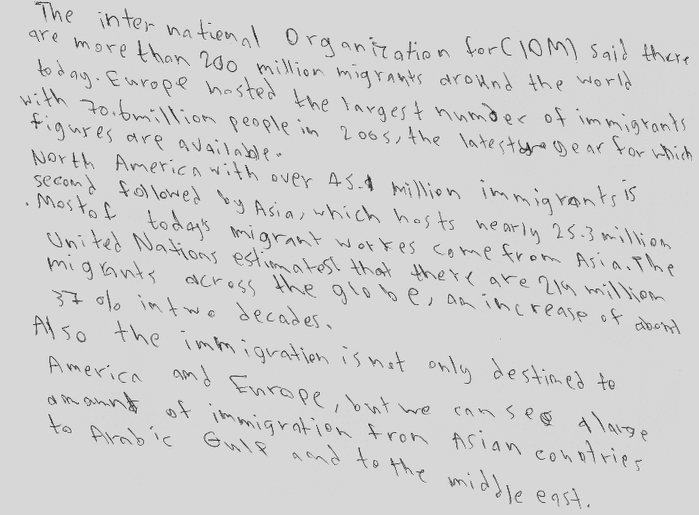 The international Organization for (IOM) said there
are more than 200 million migrants around the world
today. Europe hosted the largest number of immigrants
with 70.6 million people in 2005, the latest year for which
figures are available.
North America with over 45.1 million immigrants is
second followed by Asia, which hosts nearly 25.3 million
. Most of today's migrant workes come from Asia. The
United Nations estimatest that there are 214 million
migrants across the globe, an increase of about
37 % in two decades.
Also the immigration is not only destined to
America and Europe, but we can see a large
amount of immigration from Asian countries
to Arabic Gulf and to the middle east.